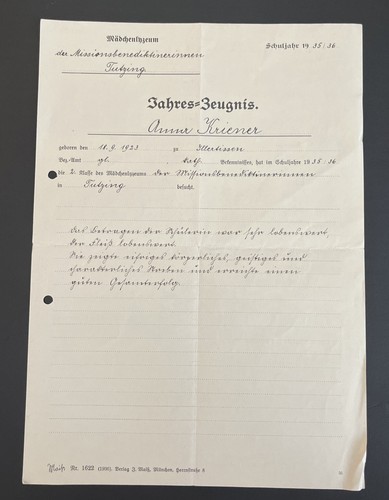 Mädchenlyzeum
der Missionsbenediktinerinnen
Tutzing
Schuljahr 1935/36
Jahres=Zeugnis.
Anna Kriener
geboren den 18.9.1923 zu Illertissen
Bez.-Amt gl. kath. Bekenntnisses, hat im Schuljahre 1935/36
die 2. Klasse des Mädchenlyzeums der Missionsbenediktinerinnen
in Tutzing besucht.
Das Betragen der Schülerin war sehr lobenswert,
der Fleiß lobenswert.
Sie zeigte eifriges körperliches, geistiges und
charakterliches Streben und erreichte einen
guten Gesamterfolg.
Maiß Nr. 1622 (1935) Verlag J. Maiß, München,